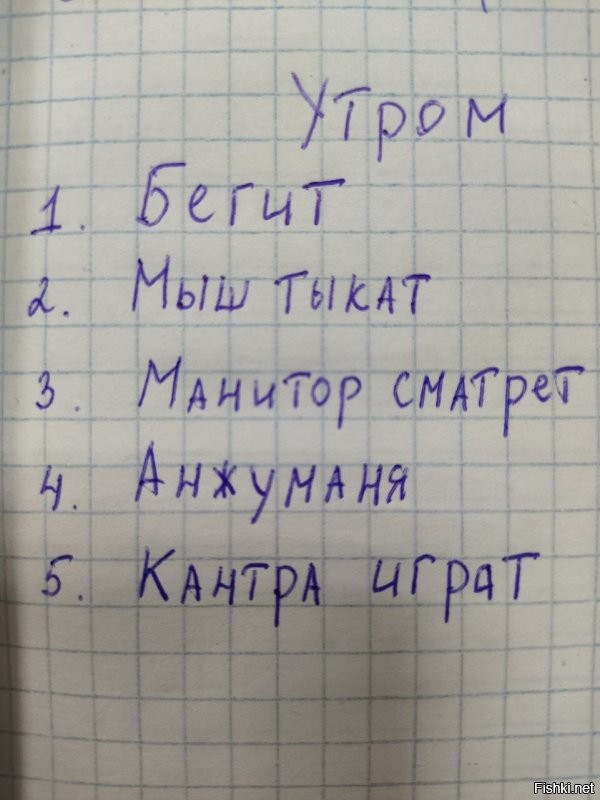 Утром
1. Бегит
2. Мыш тыкат
3. Манитор сматрет
4. Анжуманя
5. Кантра играт
Fishki.net